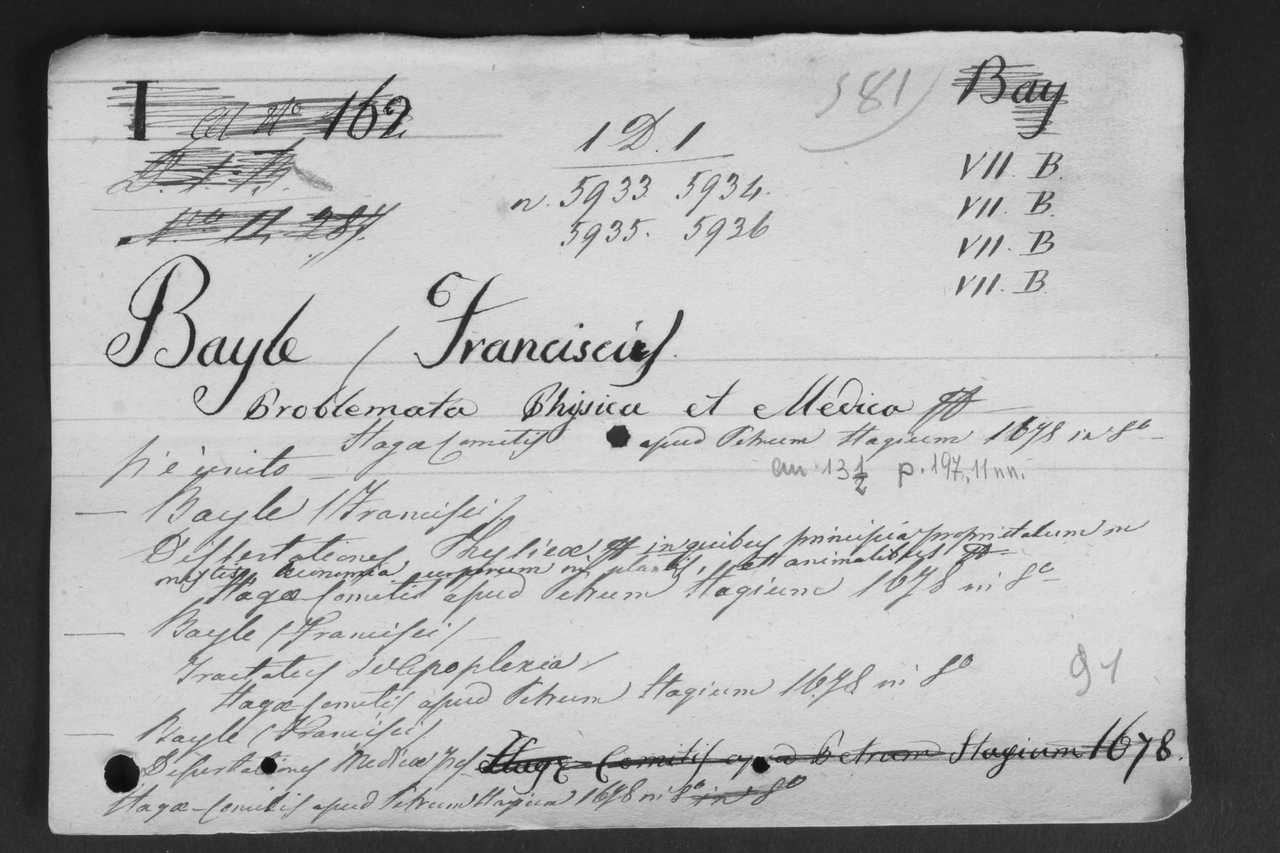 I al N° 162
581)
Bay
1 D. 1
n. 5933 5934.
5935. 5936
VII. B.
VII. B.
VII. B
VII. B.
Bayle (Franciscus).
Problemata Physica et Medica
Hagæ Comitis apud Petrum Hagium 1678 in 8°
an 13 1/2 p. 197, 11 nn.
— Bayle (Francisci)
Dissertationes Physicæ in quibus principia proprietatum in
mixtis, œconomia corporum in plantis, et animalibus
Hagæ Comitis apud Petrum Hagium 1678 in 8°
— Bayle (Francisci)
Tractatus de Apoplexia
Hagæ Comitis apud Petrum Hagium 1678 in 8°
91
— Bayle (Francisci)
Dissertationes Medicæ tres Hagæ Comitis apud Petrum Hagium 1678.
Hagæ Comitis apud Petrum Hagium 1678 in 8° in 8°